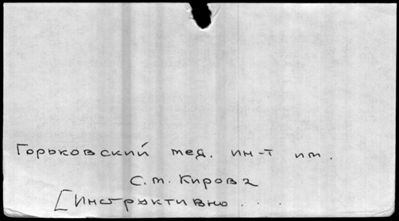 Горьковский мед. ин-т им.
С.М. Кирова
[Инструктивно...